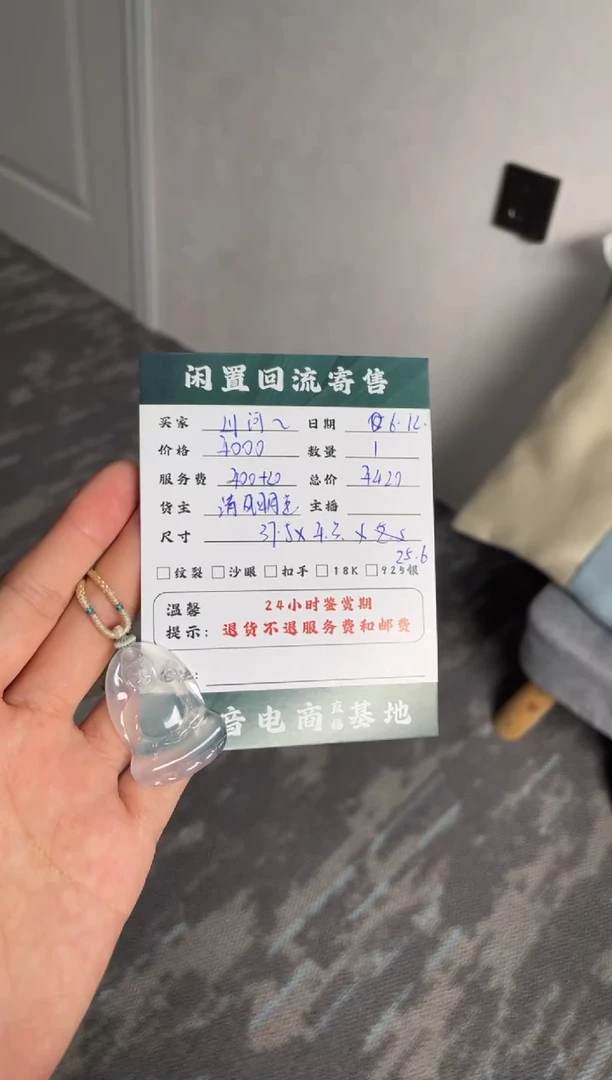 闲置回流寄售
买家 川河~ 日期 6.12.
价格 4000 数量 1
服务费 400+20 总价 4420
货主 清风明月 主播
尺寸 37.5x4.3
25.6
□纹裂 □沙眼 □扣手 □18K □925银
温馨 24小时鉴赏期
提示: 退货不退服务费和邮费
注:
音电商直播基地